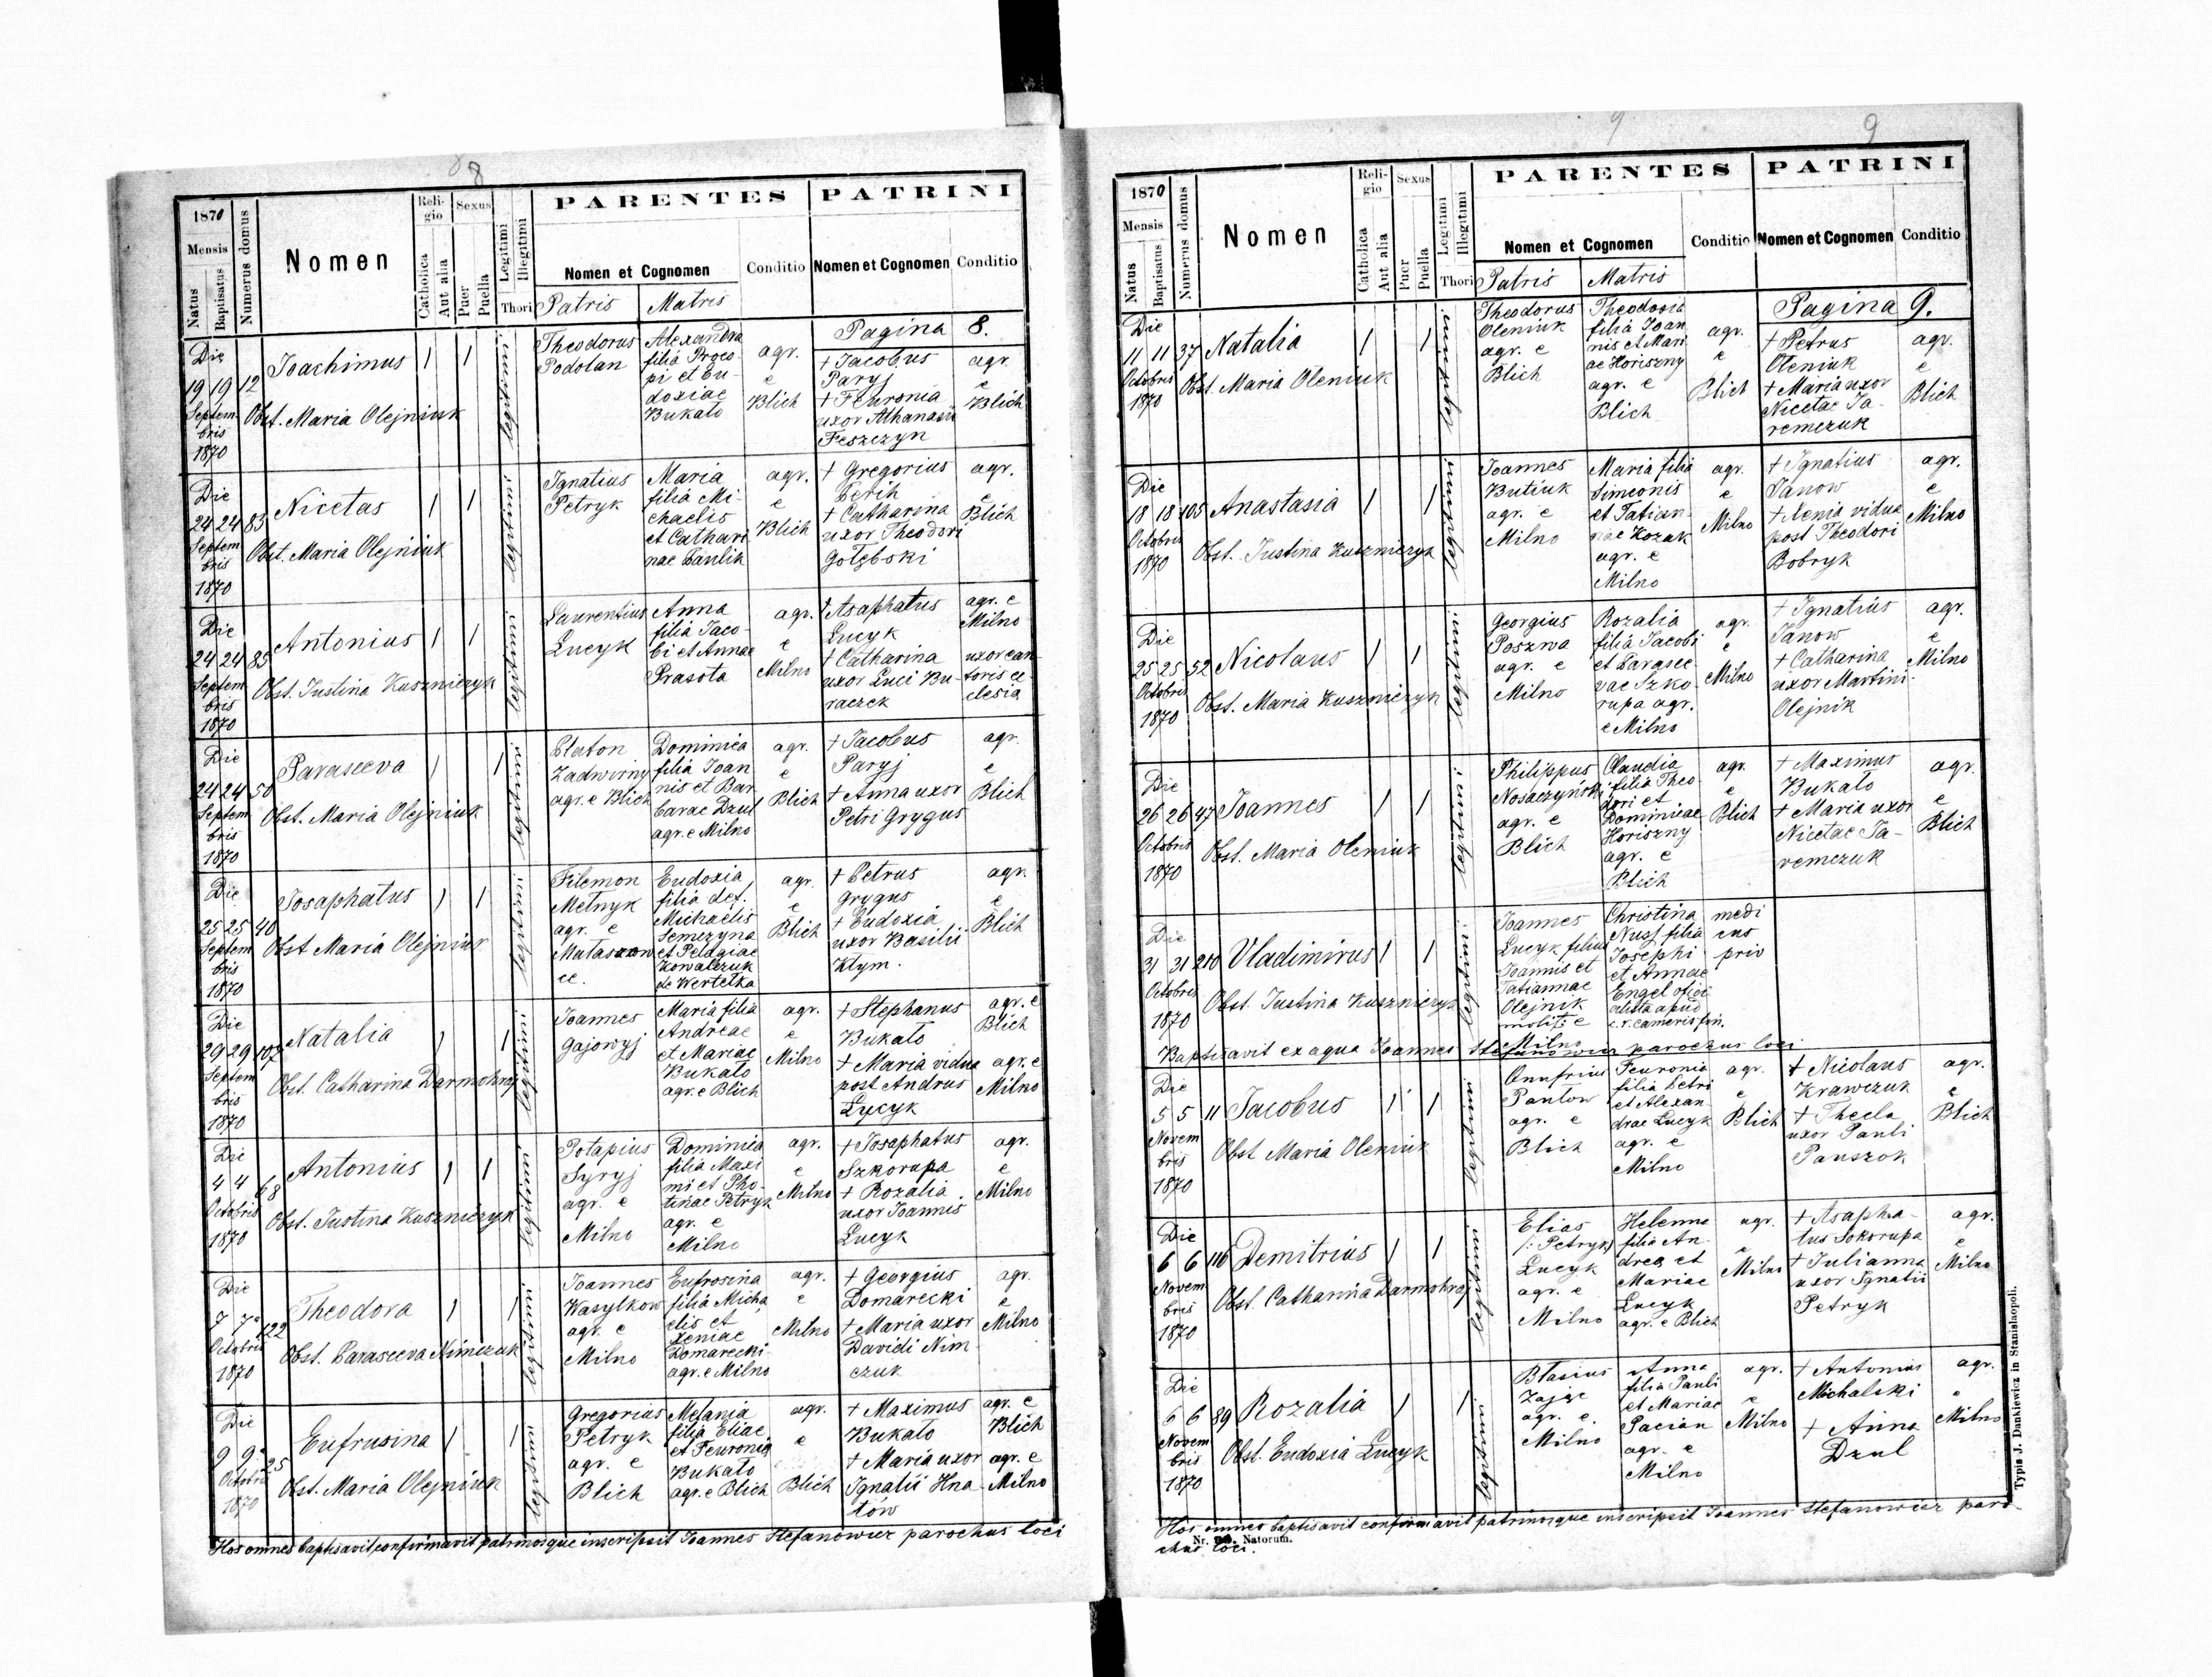 8
1870
Mensis
Natus
Baptisatus
Numerus domus
Nomen
Religio
Catholica
Aut alia
Sexus
Puer
Puella
Legitimi
Illegitimi
Thori
PARENTES
Nomen et Cognomen
Conditio
Patris Matris
PATRINI
Nomen et Cognomen
Conditio
Pagina 8.
Die
19 19 12
Septem
bris
1870
Joachimus 1 1
Obst. Maria Olejniuk
legitimi
Theodorus
Podolan
Alexandra
filia Proco-
pi et Eu-
doxiae
Bukato
agr.
e
Blich
+ Jacobus
Paryj
+ Feuronia
uxor Athanasii
Feszczyn
agr.
e
Blich
Die
24 24 83
Septem
bris
1870
Nicetas 1 1
Obst. Maria Olejniuk
legitimi
Ignatius
Petryk
Maria
filia Mi-
chaelis
et Cathari
nae Pawlik
agr.
e
Blich
+ Gregorius
+ Catharina
uxor Theodori
Gołębski
agr.
e
Blich
Die
24 24 85
Septem
bris
1870
Antonius 1 1
Obst. Justina Kuszniczyk
legitimi
Laurentius
Lucyk
Anna
filia Jaco-
bi et Annae
Prasota
agr.
e
Milno
+ Asaphatus
Lucyk
+ Catharina
uxor Luci Bu-
raczek
agr. e
Milno
uxor can
toris ec
clesia
Die
24 24 50
Septem
bris
1870
Parasceva 1 1
Obst. Maria Olejniuk
legitimi
Platon
Zadwirny
agr. e Blich
Dominica
filia Joan
nis et Bar
barae Dzul
agr. e Milno
agr.
e
Blich
+ Jacobus
Paryj
+ Anna uxor
Petri Grygus
agr.
e
Blich
Die
25 25 40
Septem
bris
1870
Josaphatus 1 1
Obst Maria Olejniuk
legitimi
Filemon
Melnyk
agr. e
Eudoxia
filia def.
Michaelis
Semczyna
et Pelagiae
Kowalczuk
de Wertelka
agr.
e
Blich
+ Petrus
Grygus
+ Eudoxia
uxor Basilii
Klym.
agr.
e
Blich
Die
29 29 107
Septem
bris
1870
Natalia 1 1
Obst. Catharina Darmohraj
legitimi
Joannes
Gajowyj
Maria filia
Andreae
et Mariae
Bukato
agr. e Blich
agr.
e
Milno
+ Stephanus
Bukato
+ Maria vidua
post Andrus
Lucyk
agr. e
Blich
agr. e
Milno
Die
4 4 68
Octobris
1870
Antonius 1 1
Obst. Justina Kuszniczyk
legitimi
Potapius
Syryj
agr. e
Milno
Dominica
filia Maxi
mi et Pho-
tinae Petryk
agr. e
Milno
agr.
e
Milno
+ Josaphatus
Szkorupa
+ Rozalia
uxor Joannis
Lucyk
agr.
e
Milno
Die
7 7 122
Octobris
1870
Theodora 1 1
Obst. Parasceva Nimczuk
legitimi
Joannes
Wasylkow
agr. e
Milno
Eufrosina
filia Micha
elis et
Xeniae
Domarecki
agr. e Milno
agr.
e
Milno
+ Georgius
Domarecki
+ Maria uxor
Davidi Nim
czuk
agr.
e
Milno
Die
9 9 25
Octobris
1870
Eufrusina 1 1
Obst. Maria Olejniuk
legitimi
Gregorius
Petryk
agr. e
Blich
Melania
filia Eliae
et Feuronia
Bukato
agr. e Blich
agr.
e
Blich
+ Maximus
Bukato
+ Maria uxor
Ignatii Hna
tów
agr. e
Blich
agr. e
Milno
Hos omnes baptisavit confirmavit patrinosque inscripsit Joannes Stefanowicz parochus loci
9
9
1870
Mensis
Natus
Baptisatus
Numerus domus
Nomen
Religio
Catholica
Aut alia
Sexus
Puer
Puella
Legitimi
Illegitimi
Thori
PARENTES
Nomen et Cognomen
Conditio
Patris Matris
PATRINI
Nomen et Cognomen
Conditio
Pagina 9.
Die
11 11 37
Octobris
1870
Natalia 1 1
Obst. Maria Oleniuk
legitimi
Theodorus
Oleniuk
agr. e
Blich
Theodosia
filia Joan
nis et Mari
ae Horiszny
agr. e
Blich
agr.
e
Blich
+ Petrus
Oleniuk
+ Maria uxor
Nicetae Ja-
remczuk
agr.
e
Blich
Die
18 18 105
Octobris
1870
Anastasia 1 1
Obst. Justina Kuszniczyk
legitimi
Joannes
Butiuk
agr. e
Milno
Maria filia
Simeonis
et Tatian-
nae Kozak
agr. e
Milno
agr.
e
Milno
+ Ignatius
Janow
+ Xenia vidua
post Theodori
Bobryk
agr.
e
Milno
Die
25 25 52
Octobris
1870
Nicolaus 1 1
Obst. Maria Kuszniczyk
legitimi
Georgius
Poszwa
agr. e
Milno
Rozalia
filia Jacobi
et Parasce
vae Szko-
rupa agr.
e Milno
agr.
e
Milno
+ Ignatius
Janow
+ Catharina
uxor Martini
Olejnik
agr.
e
Milno
Die
26 26 47
Octobris
1870
Joannes 1 1
Obst. Maria Oleniuk
legitimi
Philippus
Nosaczyński
agr. e
Blich
Claudia
filia Theo
dori et
Dominicae
Horiszny
agr. e
Blich
agr.
e
Blich
+ Maximus
Bukato
+ Maria uxor
Nicetae Ja-
remczuk
agr.
e
Blich
Die
31 31 210
Octobris
1870
Vladimirus 1 1
Obst. Justina Kuszniczyk
legitimi
Joannes
Lucyk filius
Joannis et
Tatiannae
Olejnik
molit: e
Milno
Christina
Nuss filia
Josephi
et Annae
Engel offici
alista apud
c. r. cameris fin.
medi
cus
priv
Baptisavit ex aqua Joannes Stefanowicz parochus loci
Die
5 5 11
Novem
bris
1870
Jacobus 1 1
Obst Maria Oleniuk
legitimi
Onufrius
Pantow
agr. e
Blich
Feuronia
filia Petri
et Alexan-
drae Lucyk
agr. e
Milno
agr.
e
Blich
+ Nicolaus
Krawczuk
+ Thecla
uxor Pauli
Panszok
agr.
e
Blich
Die
6 6 116
Novem
bris
1870
Demitrius 1 1
Obst. Catharina Darmohraj
legitimi
Elias
/: Petryk
Lucyk
agr. e
Milno
Helenna
filia An-
drea et
Mariae
Lucyk
agr. e Blich
agr.
e
Milno
+ Asapha-
tus Sokorupa
+ Julianna
uxor Ignatii
Petryk
agr.
e
Milno
Die
6 6 89
Novem
bris
1870
Rozalia 1 1
Obst. Eudoxia Lucyk
legitimi
Blasius
Zając
agr. e.
Milno
Anna
filia Pauli
et Mariae
Pacian
agr. e
Milno
agr.
e
Milno
+ Antonius
Michalski
+ Anna
Dzul
agr.
e
Milno
Hos omnes baptisavit confirmavit patrinosque inscripsit Joannes Stefanowicz paro-
chus loci.
Nr. Natorum.
Typis J. Dankiewicz in Stanislaopoli.